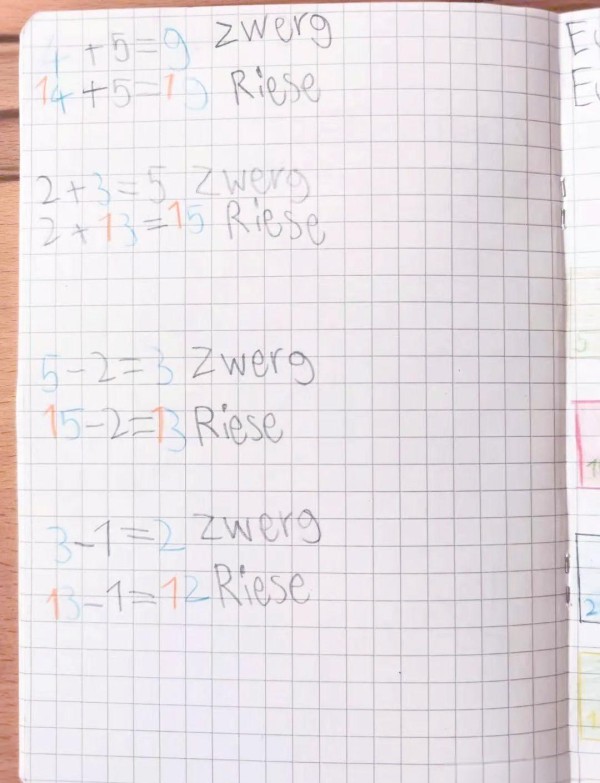 4+5=9 Zwerg
14+5=19 Riese
2+3=5 Zwerg
2+13=15 Riese
5-2=3 Zwerg
15-2=13 Riese
3-1=2 Zwerg
13-1=12 Riese